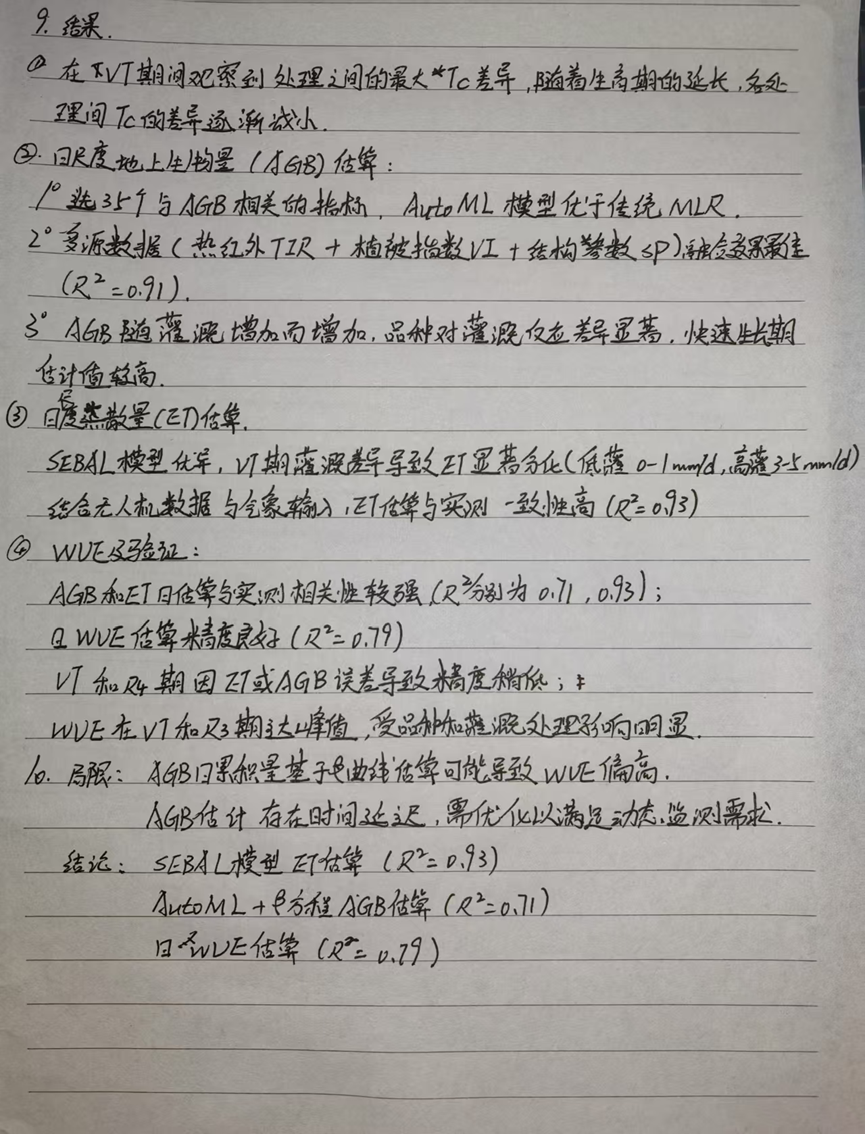 9. 结果.
① 在VT期间观察到处理之间的最大Tc差异,随着生育期的延长,各处
理间Tc的差异逐渐减小.
②. 日尺度地上生物量(AGB)估算:
1° 选35个与AGB相关的指标, AutoML模型优于传统MLR.
2° 多源数据(热红外TIR + 植被指数VI + 结构参数SP)融合效果最佳
(R²=0.91).
3° AGB随灌溉增加而增加,品种对灌溉反应差异显著.快速生长期
估计值较高.
③ 日尺度蒸散量(ET)估算.
SEBAL模型优异,VT期灌溉差异导致ET显著分化(低灌 0-1mm/d,高灌3-5mm/d)
结合无人机数据与气象输入,ET估算与实测一致性高(R²=0.93)
④ WUE及验证:
AGB和ET日估算与实测相关性较强(R²分别为 0.71, 0.93);
且WUE估算精度良好(R²=0.79)
VT和R4期因ET或AGB误差导致精度稍低;
WUE在VT和R3期达峰值,受品种和灌溉处理影响明显.
10. 局限: AGB日累积量基于β曲线估算可能导致WUE偏高.
AGB估计存在时间延迟,需优化以满足动态监测需求.
结论: SEBAL模型ET估算(R²=0.93)
AutoML+β方程AGB估算(R²=0.71)
日WUE估算(R²=0.79)